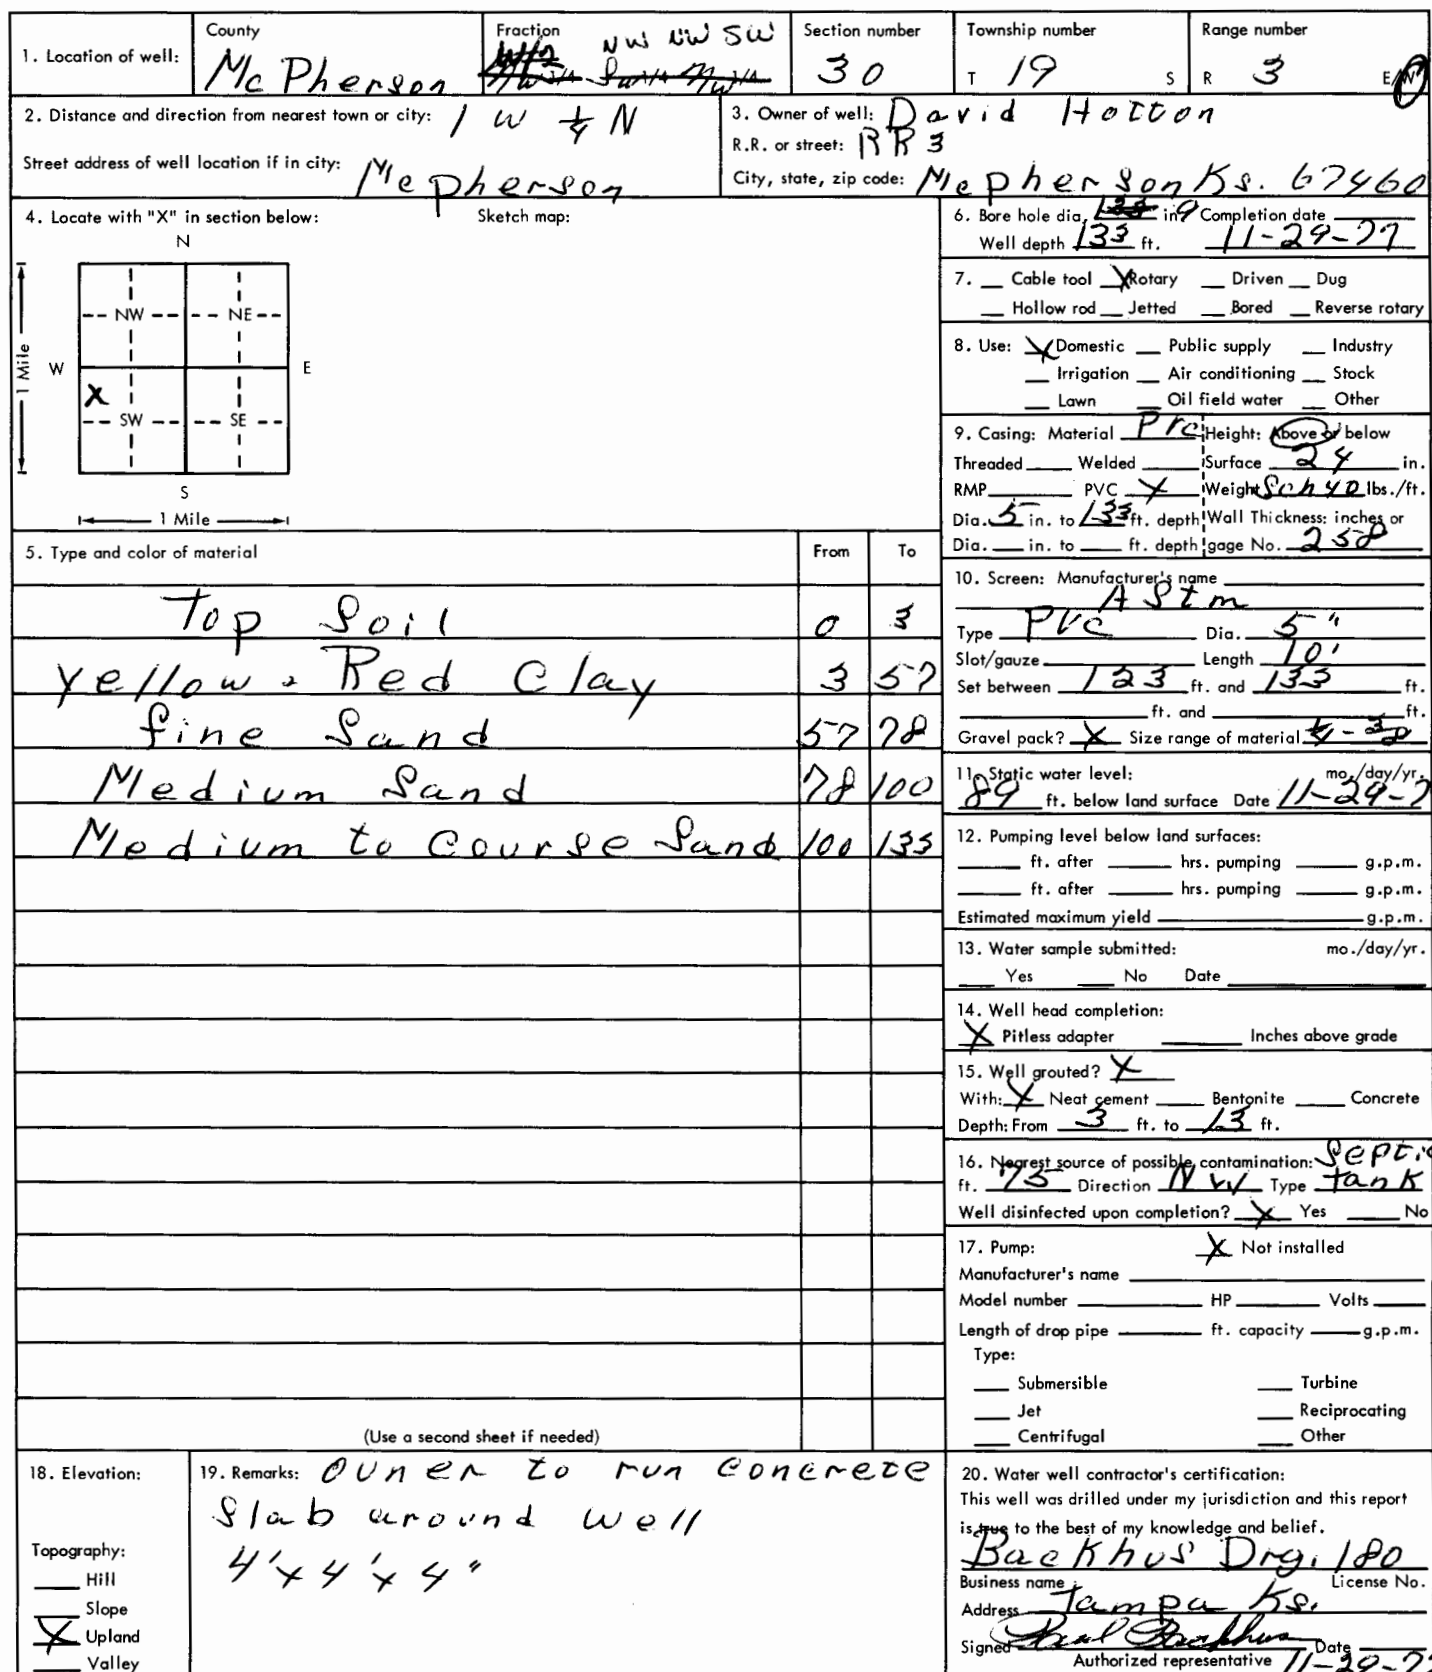 1. Location of well: County McPherson Fraction NW NW SW Section number 30 Township number T 19 S Range number R 3 E/W
2. Distance and direction from nearest town or city: 1 W 1/4 N
Street address of well location if in city: Mcpherson
3. Owner of well: David Hotton
R.R. or street: RR 3
City, state, zip code: Mcpherson Ks. 67460
4. Locate with "X" in section below: Sketch map:
N
NW NE
W E
X
SW SE
S
1 Mile
1 Mile
5. Type and color of material From To
Top Soil 0 3
Yellow - Red Clay 3 57
fine Sand 57 78
Medium Sand 78 100
Medium to Course Sand 100 133
(Use a second sheet if needed)
6. Bore hole dia. 9 in. Completion date
Well depth 133 ft. 11-29-77
7. Cable tool X Rotary Driven Dug
Hollow rod Jetted Bored Reverse rotary
8. Use: X Domestic Public supply Industry
Irrigation Air conditioning Stock
Lawn Oil field water Other
9. Casing: Material PVC Height: Above or below
Threaded Welded Surface 24 in.
RMP PVC X Weight Sch 40 lbs./ft.
Dia. 5 in. to 133 ft. depth Wall Thickness: inches or
Dia. in. to ft. depth gage No. 258
10. Screen: Manufacturer's name
AStm
Type PVC Dia. 5"
Slot/gauze Length 10'
Set between 123 ft. and 133 ft.
ft. and ft.
Gravel pack? X Size range of material 1/4 - 3/8
11. Static water level: mo./day/yr.
89 ft. below land surface Date 11-29-7
12. Pumping level below land surfaces:
ft. after hrs. pumping g.p.m.
ft. after hrs. pumping g.p.m.
Estimated maximum yield g.p.m.
13. Water sample submitted: mo./day/yr.
Yes No Date
14. Well head completion:
X Pitless adapter Inches above grade
15. Well grouted? X
With: X Neat cement Bentonite Concrete
Depth: From 3 ft. to 13 ft.
16. Nearest source of possible contamination: Septic
ft. 75 Direction NW Type tank
Well disinfected upon completion? X Yes No
17. Pump: X Not installed
Manufacturer's name
Model number HP Volts
Length of drop pipe ft. capacity g.p.m.
Type:
Submersible Turbine
Jet Reciprocating
Centrifugal Other
18. Elevation:
Topography:
Hill
Slope
X Upland
Valley
19. Remarks: Owner to run concrete
Slab around well
4' x 4' x 4"
20. Water well contractor's certification:
This well was drilled under my jurisdiction and this report
is true to the best of my knowledge and belief.
Backhus Drg. 180
Business name License No.
Address Tampa Ks.
Signed Paul Backhus Date
Authorized representative 11-29-77